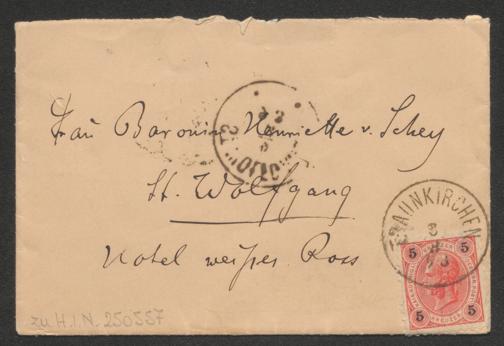 Frau Baronin Henriette v. Schey
St. Wolfgang
Hotel weißes Ross
TRAUNKIRCHEN
3
8
93
5 5
5 5
zu H.I.N. 250557